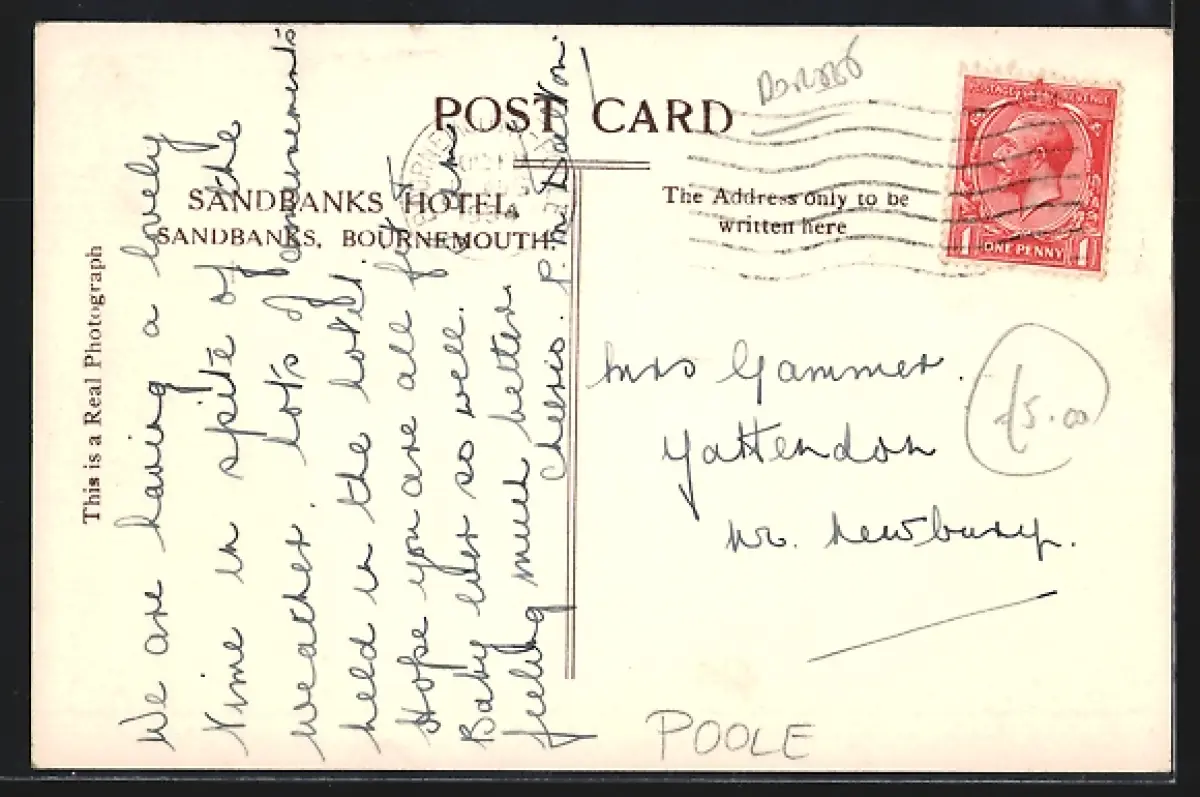 POST CARD
Dorset
SANDBANKS HOTEL,
SANDBANKS, BOURNEMOUTH.
The Address only to be
written here
ONE PENNY
1 1
This is a Real Photograph
We are having a lovely
time in spite of the
weather. lots of amusements
held in the hotel.
Hope you are all fit I am
Baby ever so well.
feeling much better.
cheerio. P.
Mrs Gammer.
Yattendon
nr. Newbury.
£5.00
POOLE